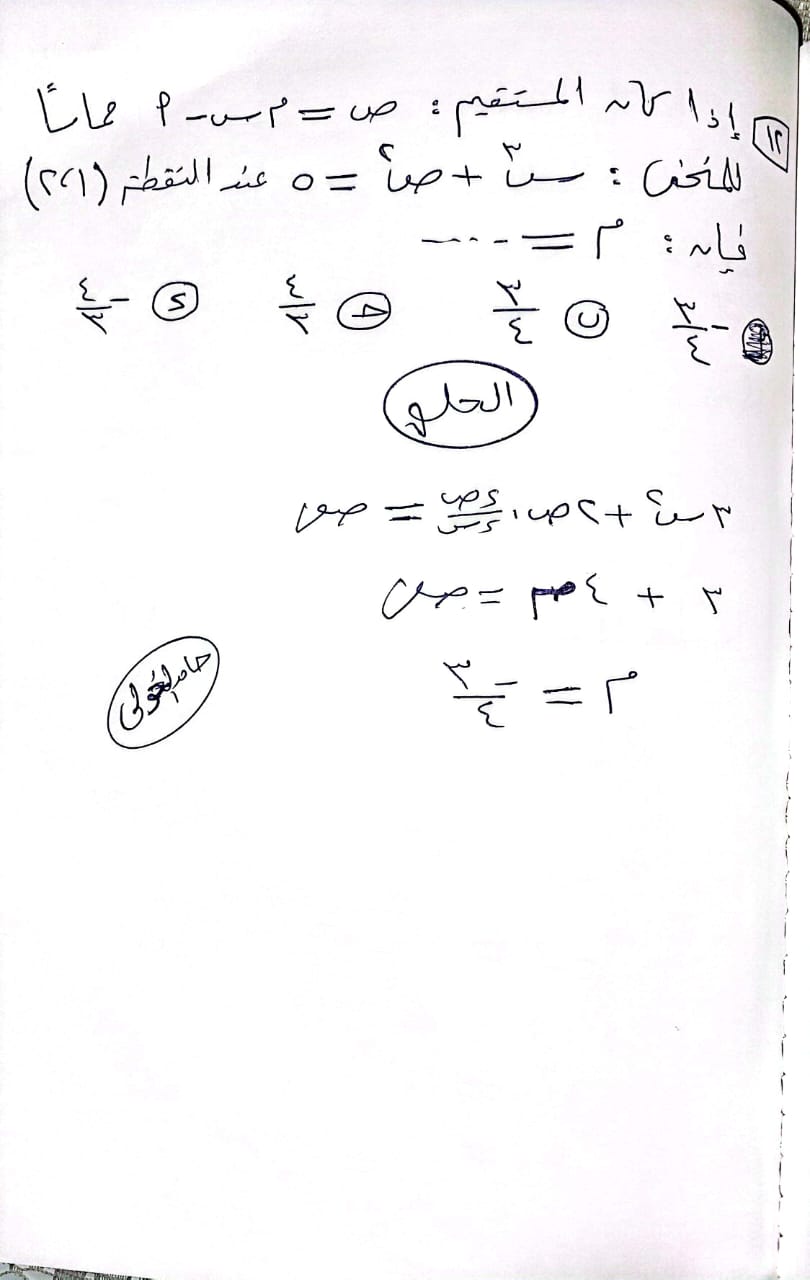 ١٢ إذا كان المستقيم: ص = م س - ٩ مماسًا
للمنحنى: س٣ + ص٢ = ٥ عند النقطة (٢،١)
فإن: م = ....
-٣/٤ ب ٣/٤ ح ٤/٣ د -٤/٣
الحل
٣س٢ + ٢ص . دص/دس = صفر
٣ + ٤م = صفر
م = -٣/٤